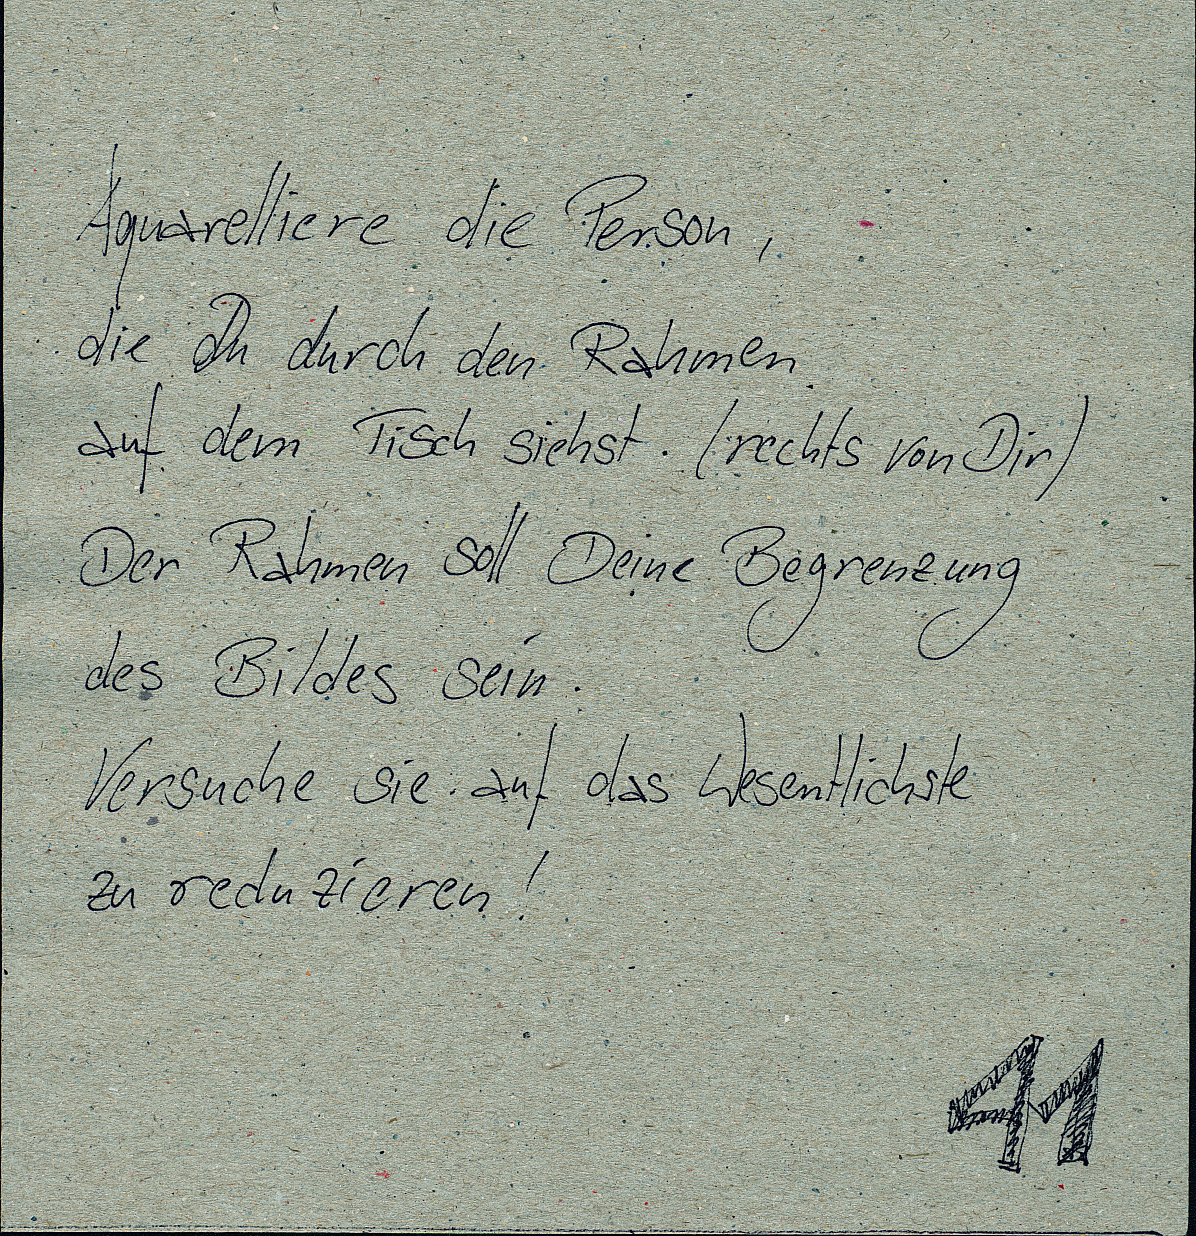 Aquarelliere die Person,
die Du durch den Rahmen
auf dem Tisch siehst. (rechts von Dir)
Der Rahmen soll Deine Begrenzung
des Bildes sein.
Versuche sie auf das Wesentlichste
zu reduzieren!
41